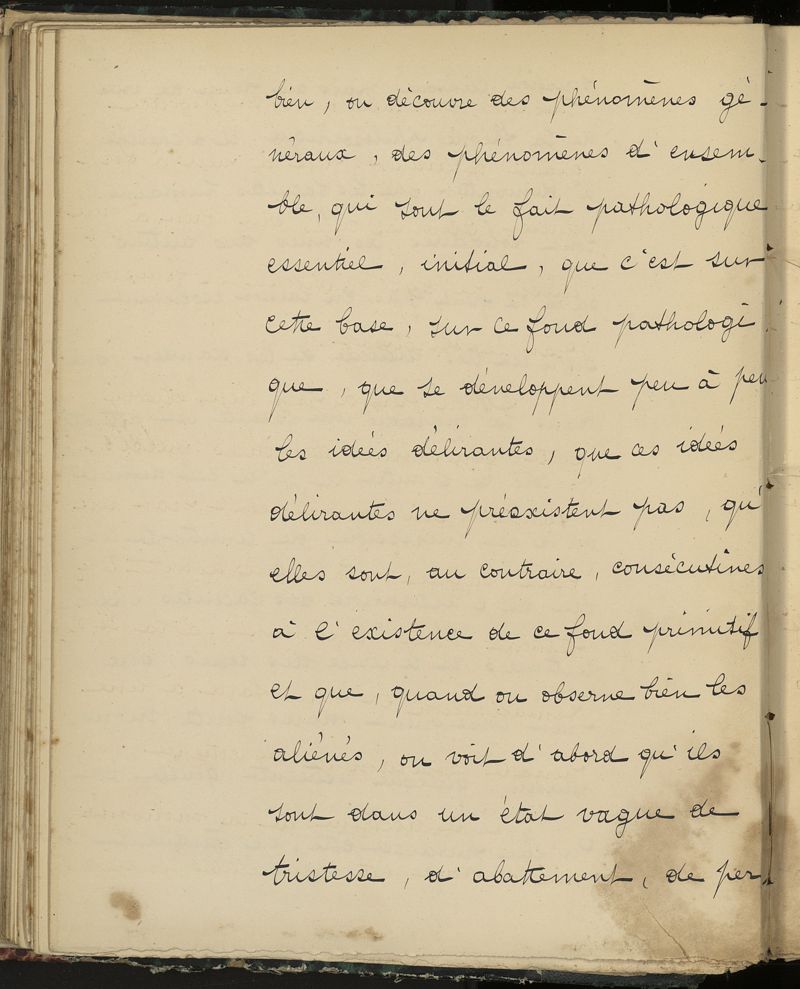 bien, on découvre des phénomènes gé-
néraux, des phénomènes d'ensem-
ble, qui sont le fait pathologique
essentiel, initial, que c'est sur
cette base, sur ce fond pathologi
que, que se développent peu à peu
les idées délirantes, que ces idées
délirantes ne préexistent pas, qu'
elles sont, au contraire, consécutives
à l'existence de ce fond primitif
et que, quand on observe bien les
aliénés, on voit d'abord qu'ils
sont dans un état vague de
tristesse, d'abattement, de per